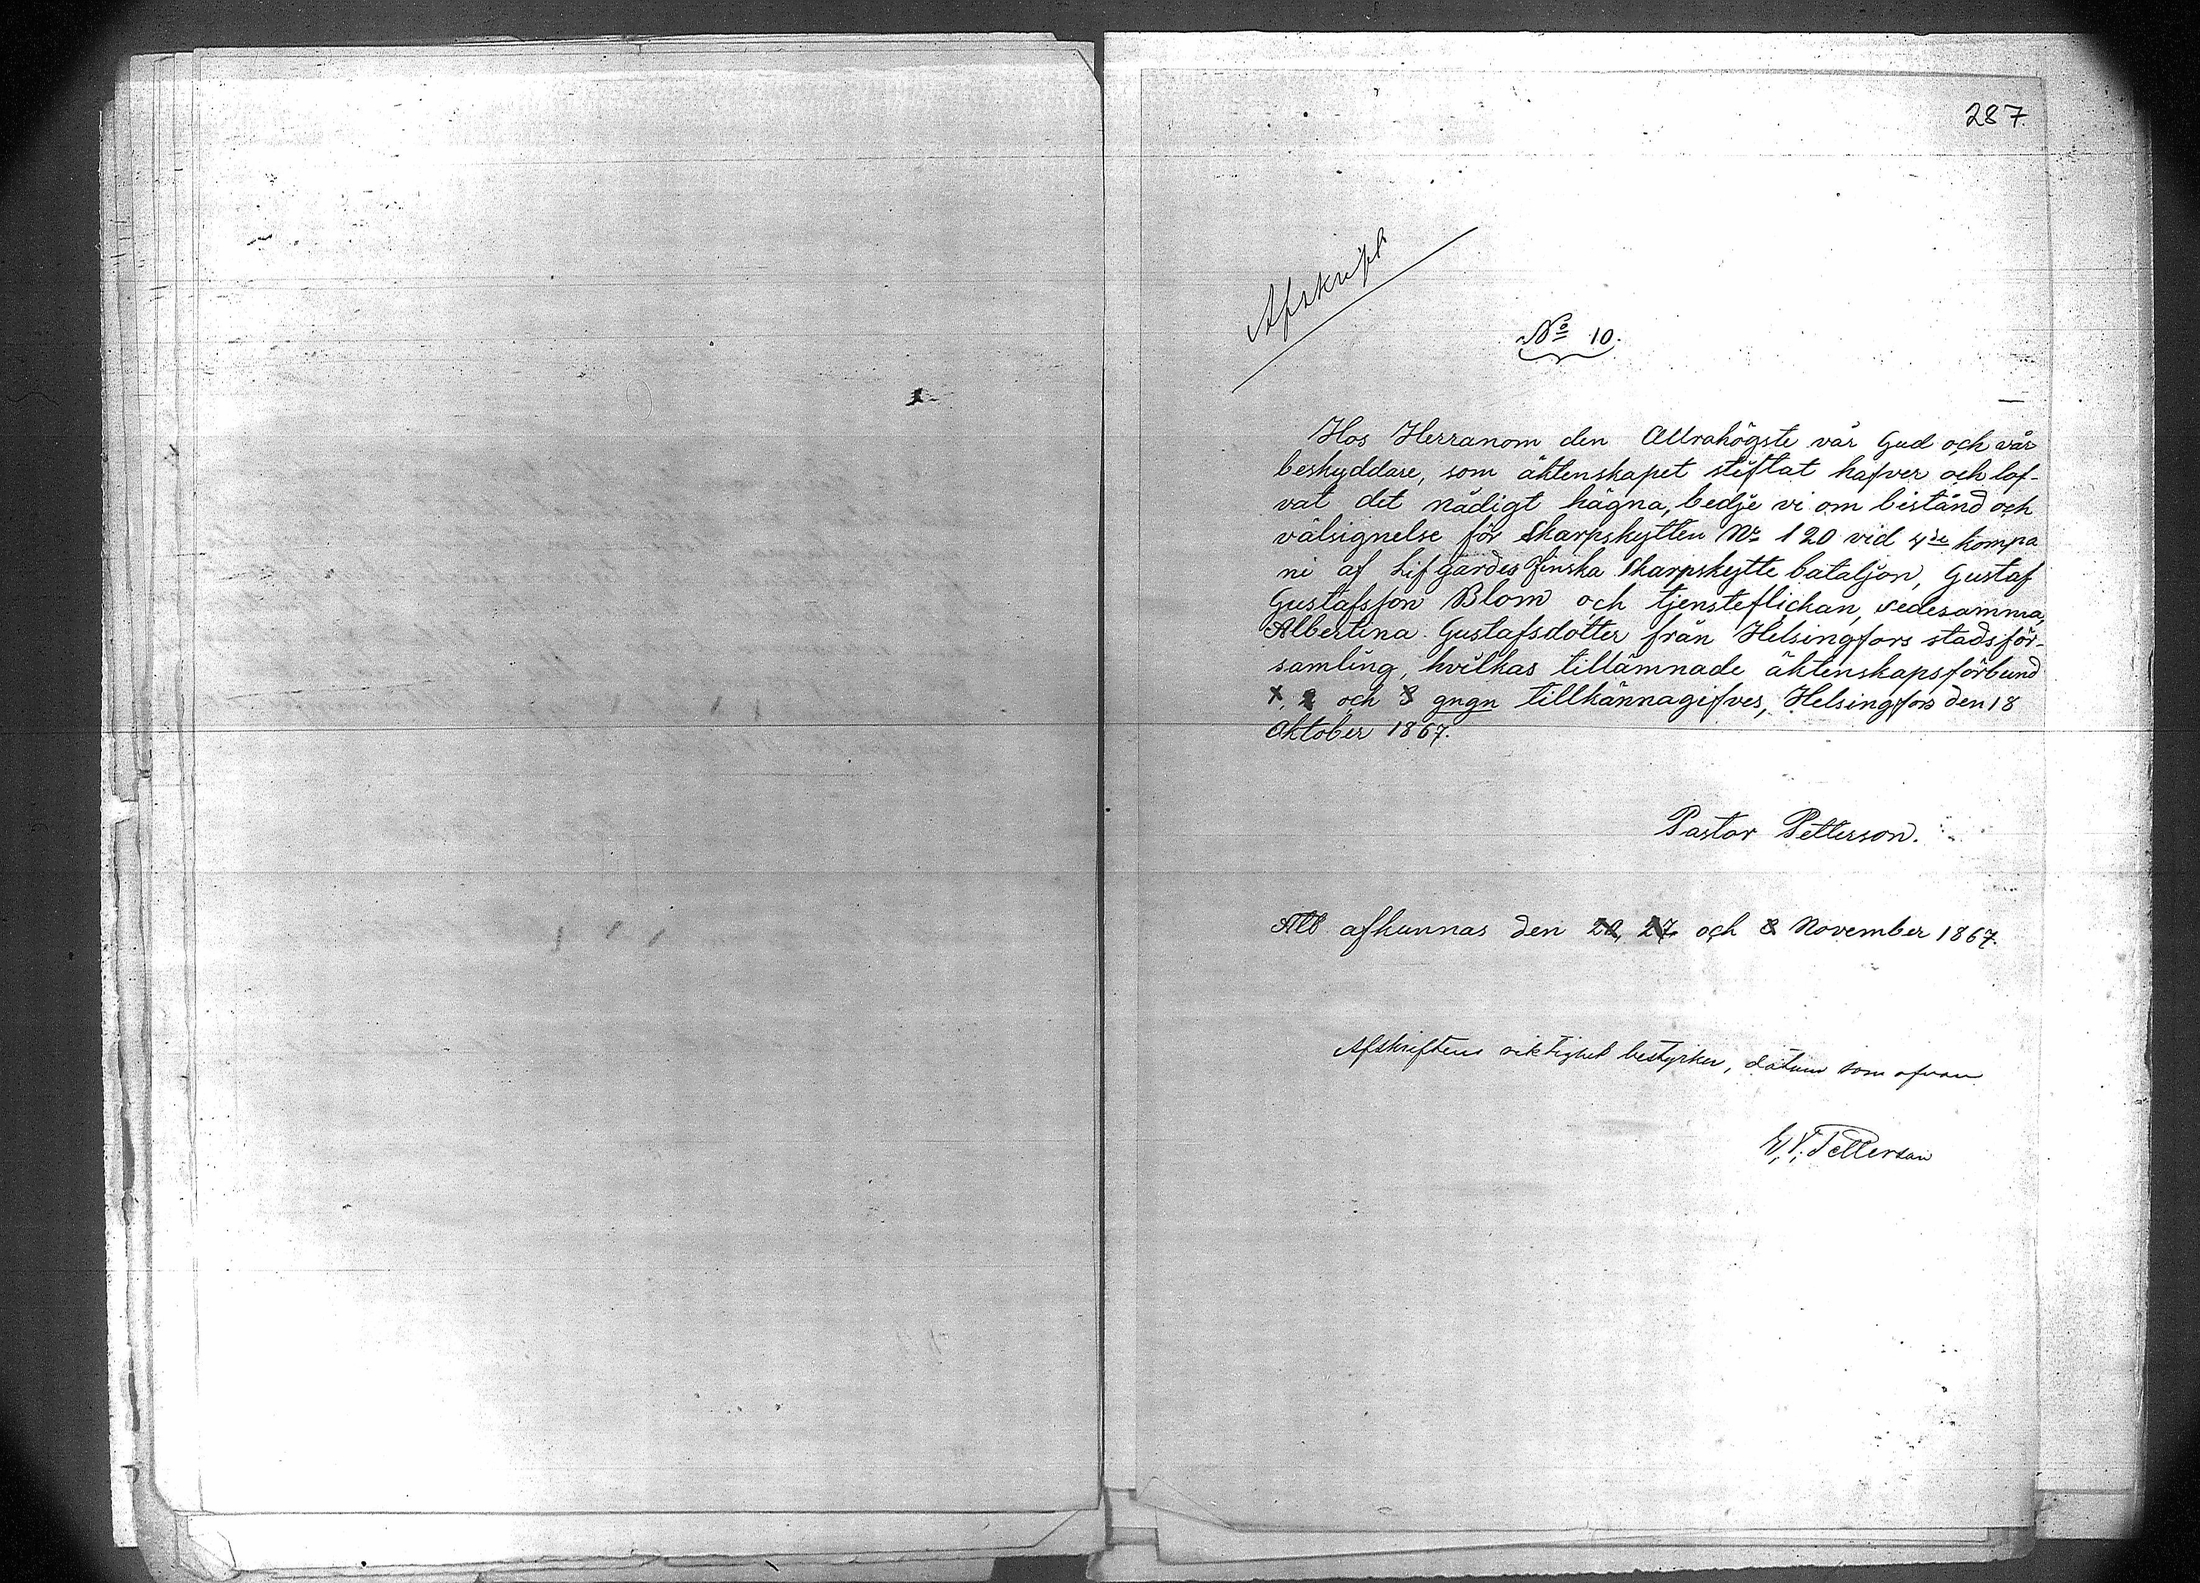 287.
Afskrift
No 10.
Hos Herranom den Allrahögste vår Gud och vår
beskyddare, som äktenskapet stiftat hafver och lof-
vat det nådigt hägna, bedje vi om bistånd och
välsignelse för Skarpskytten No 120 vid 4de kompa
ni af Lifgardes Finska Skarpskytte bataljon, Gustaf
Gustafsson Blom och tjensteflickan, sedesamma,
Albertina Gustafsdotter från Helsingfors stadsför-
samling, hvilkas tillämnade äktenskapsförbund
1, 2 och 3 gngn tillkännagifves, Helsingfors den 18
Oktober 1867.
Pastor Petterson.
Att afkunnas den 20, 27 och 3 November 1867.
Afskriftens riktighet bestyrker, datum som ofvan
Petterson